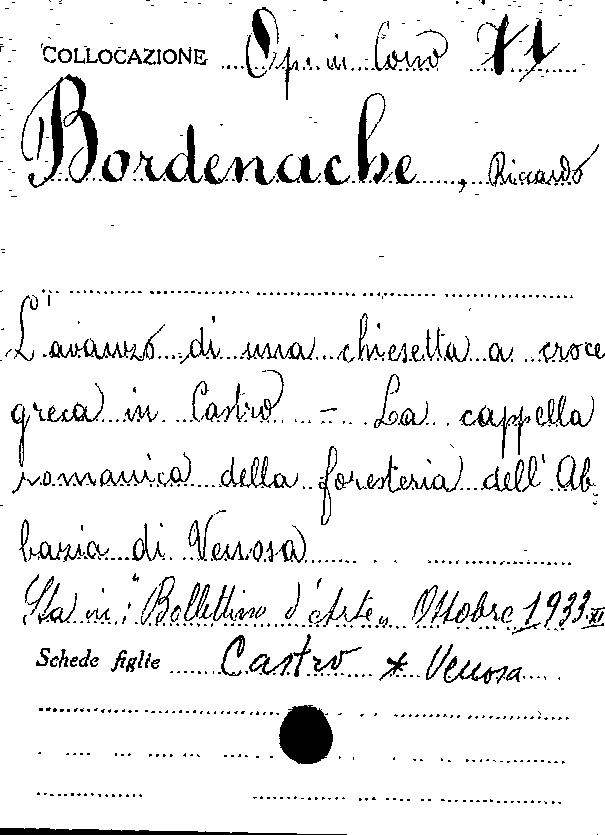 COLLOCAZIONE Op. in Corso 71
Bordenache, Riccardo
L'avanzo di una chiesetta a croce
greca in Castro - La cappella
romanica della foresteria dell'Ab-
bazia di Venosa
Sta in: "Bollettino d'Arte„ Ottobre 1933.XI
Schede figlie Castro * Venosa